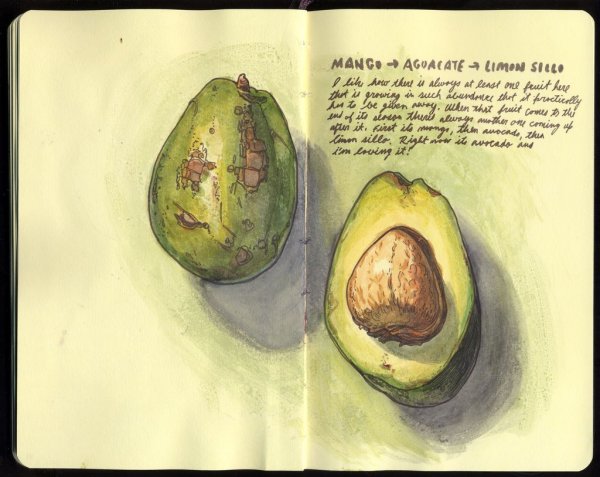 MANGO → AGUACATE → LIMON SILLO
I like how there is always at least one fruit here
that is growing in such abundance that it practically
has to be given away. When that fruit comes to the
end of its season there's always another one coming up
after it. First its mango, then avocado, then
limon sillo. Right now its avocado and
I'm loving it!